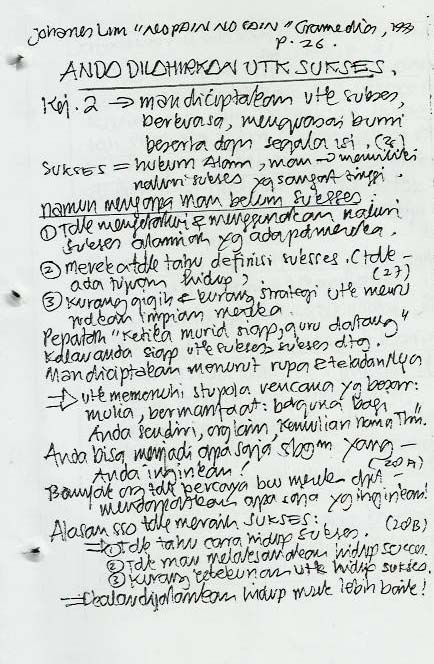 Johanes Lim "NO PAIN NO GAIN" Gramedia, 1999
p. 26.
ANDA DILAHIRKAN UTK SUKSES.
Kej. 2 → man diciptakan utk sukses,
berkuasa, menguasai bumi
beserta dgn segala isi. (26)
SUKSES = hukum Alam, man → memiliki
naluri sukses yg sangat tinggi.
namun mengapa man belum sukses:
① Tdk mengetahui & menggunakan naluri
sukses alamiah yg ada pd mereka.
② Mereka tdk tahu definisi sukses. (tdk
ada tujuan hidup) (27)
③ Kurang gigih & kurang strategi utk mewu
judkan impian mereka.
Pepatah "Ketika murid siap, guru datang"
Kalau anda siap utk sukses, sukses dtg.
Man diciptakan menurut rupa & teladanNya
⇒ utk memenuhi rencana yg besar:
mulia, bermanfaat: berguna bagi
Anda sendiri, org lain, kemulian nama Thn.
Anda bisa menjadi apa saja sbgm yang
Anda inginkan! (28A)
Banyak org tdk percaya bw merek dpt
mendapatkan apa saja yg inginkan!
Alasan sso tdk meraih SUKSES: (28B)
⇒ ① Tdk tahu cara hidup sukses.
② Tdk mau melaksanakan hidup sukses.
③ Kurang ketekunan utk hidup sukses.
⇒ Kalau dijalankan hidup lebih baik!